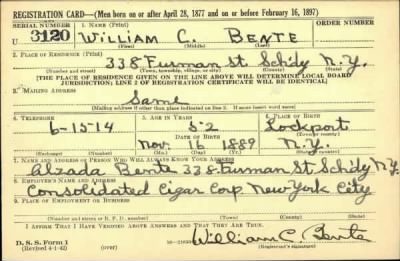 REGISTRATION CARD—(Men born on or after April 28, 1877 and on or before February 16, 1897)
SERIAL NUMBER 1. NAME (Print) ORDER NUMBER
U 3120 WILLIAM C. BENTE
(First) (Middle) (Last)
2. PLACE OF RESIDENCE (Print)
338 Furman St. Schdy N.Y.
(Number and street) (Town, township, village, or city) (County) (State)
[THE PLACE OF RESIDENCE GIVEN ON THE LINE ABOVE WILL DETERMINE LOCAL BOARD
JURISDICTION; LINE 2 OF REGISTRATION CERTIFICATE WILL BE IDENTICAL]
3. MAILING ADDRESS
Same
[Mailing address if other than place indicated on line 2. If same insert word same]
4. TELEPHONE 5. AGE IN YEARS 6. PLACE OF BIRTH
6-1514 52 Lockport
DATE OF BIRTH (Town or county)
Nov. 16 1889 N.Y.
(Exchange) (Number) (Mo.) (Day) (Yr.) (State or country)
7. NAME AND ADDRESS OF PERSON WHO WILL ALWAYS KNOW YOUR ADDRESS
Alzada Bente 338 Furman St Schdy N.Y.
8. EMPLOYER'S NAME AND ADDRESS
Consolidated Cigar Corp New York City
9. PLACE OF EMPLOYMENT OR BUSINESS
(Number and street or R. F. D. number) (Town) (County) (State)
I AFFIRM THAT I HAVE VERIFIED ABOVE ANSWERS AND THAT THEY ARE TRUE.
D. S. S. Form 1
(Revised 4-1-42) (over) William C. Bente
(Registrant's signature)